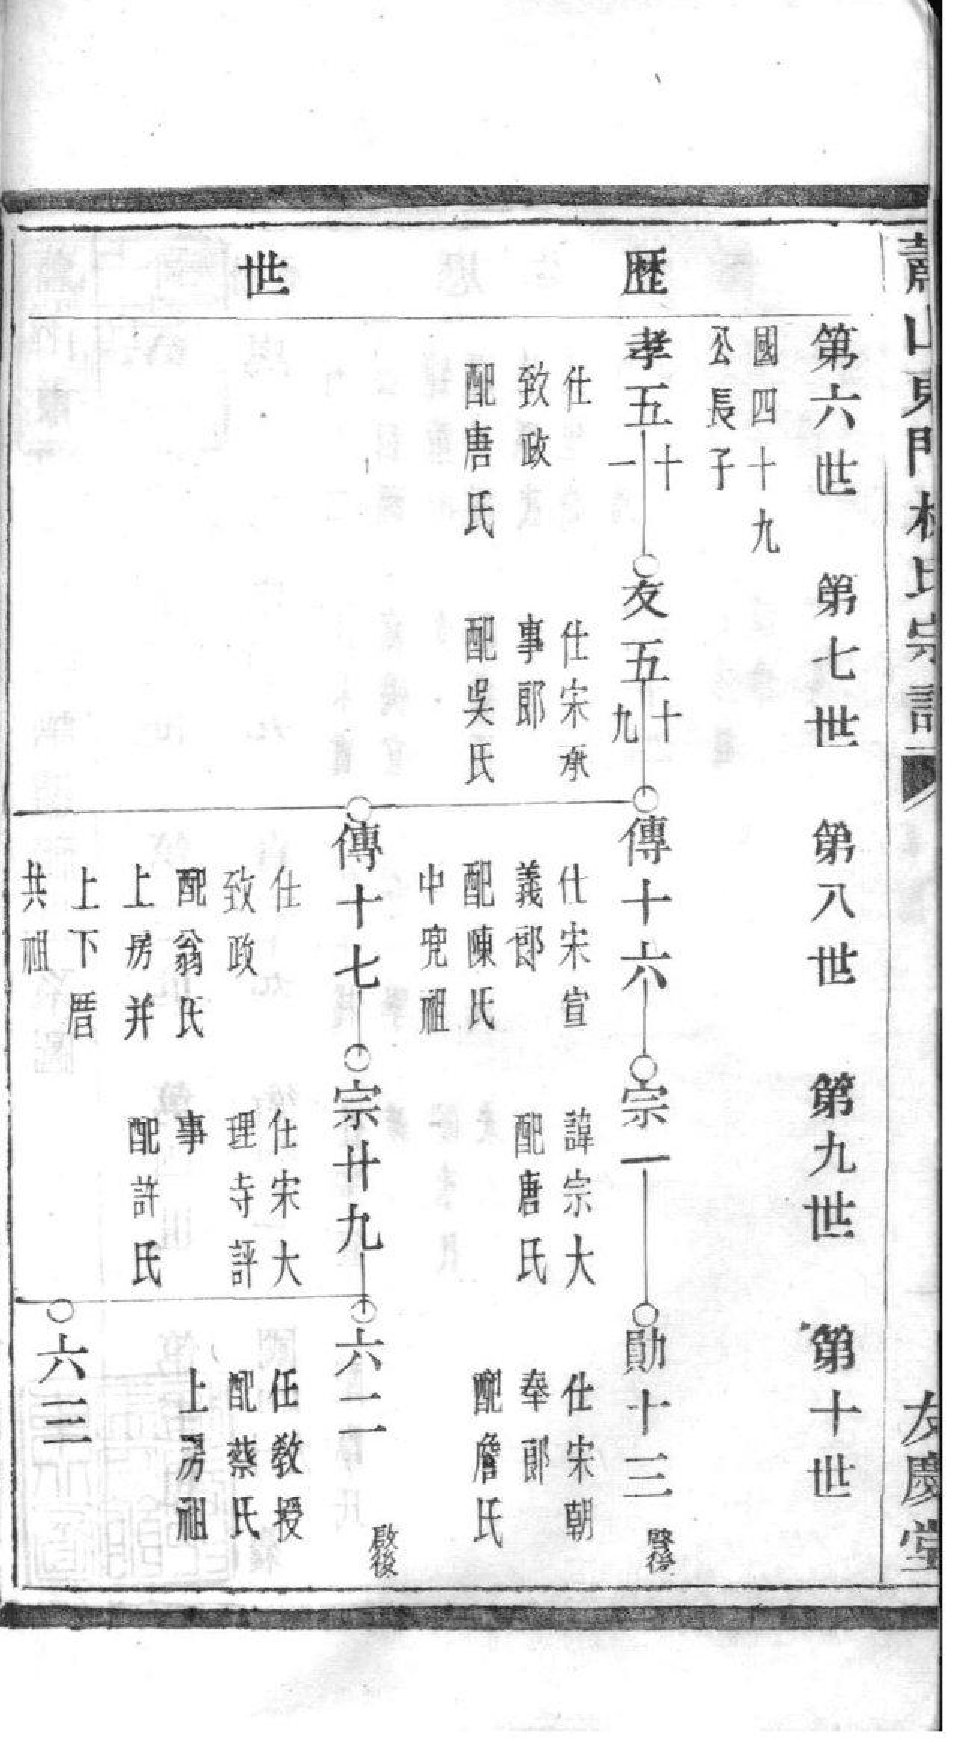 蕭山東門林氏宗譜
友慶堂
歷世
第六世 第七世 第八世 第九世 第十世
國四十九
公長子
孝五十一
仕
致政
配唐氏
友五十九
仕宋承
事郎
配吳氏
傳十六
仕宋宣
義郎
配陳氏
中兜祖
宗一
諱宗大
配唐氏
勛十三
仕宋朝
奉郎
配詹氏
傳十七
仕
致政
配翁氏
上房并
上下厝
共祖
宗廿九
仕宋大
理寺評
事
配許氏
六二
任教授
配蔡氏
上房祖
啟後
六三